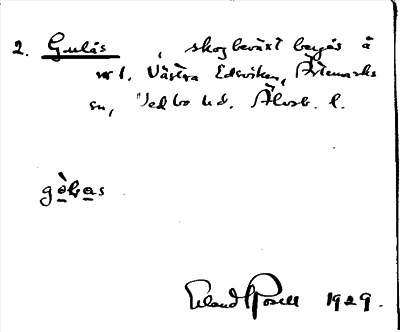 2. Gulås , skogbeväxt bergås å
nr 1, Västra Edsviken, Ärtemarks
sn, Vedbo hd. Älvsb. l.
Erland Rosell 1929.